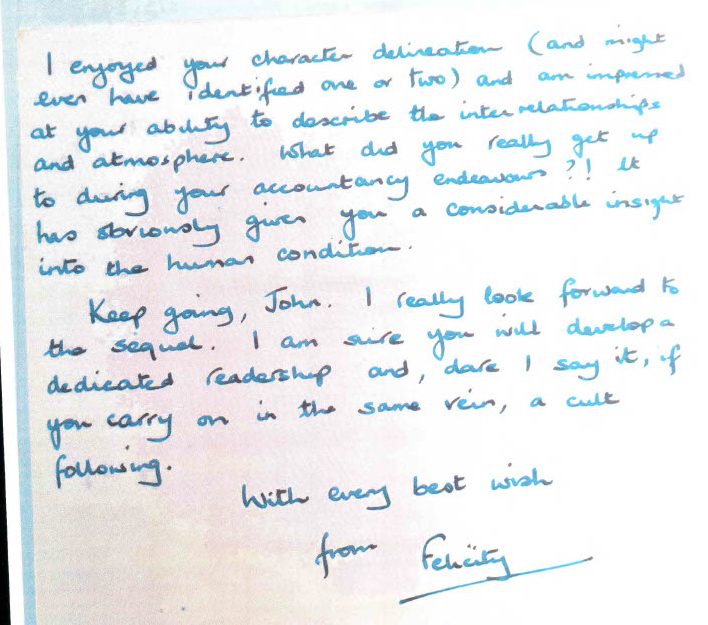 I enjoyed your character delineation (and might
even have identified one or two) and am impressed
at your ability to describe the interrelationships
and atmosphere. What did you really get up
to during your accountancy endeavours?! It
has obviously given you a considerable insight
into the human condition.
Keep going, John. I really look forward to
the sequel. I am sure you will develop a
dedicated readership and, dare I say it, if
you carry on in the same vein, a cult
following.
With every best wish
from Felicity